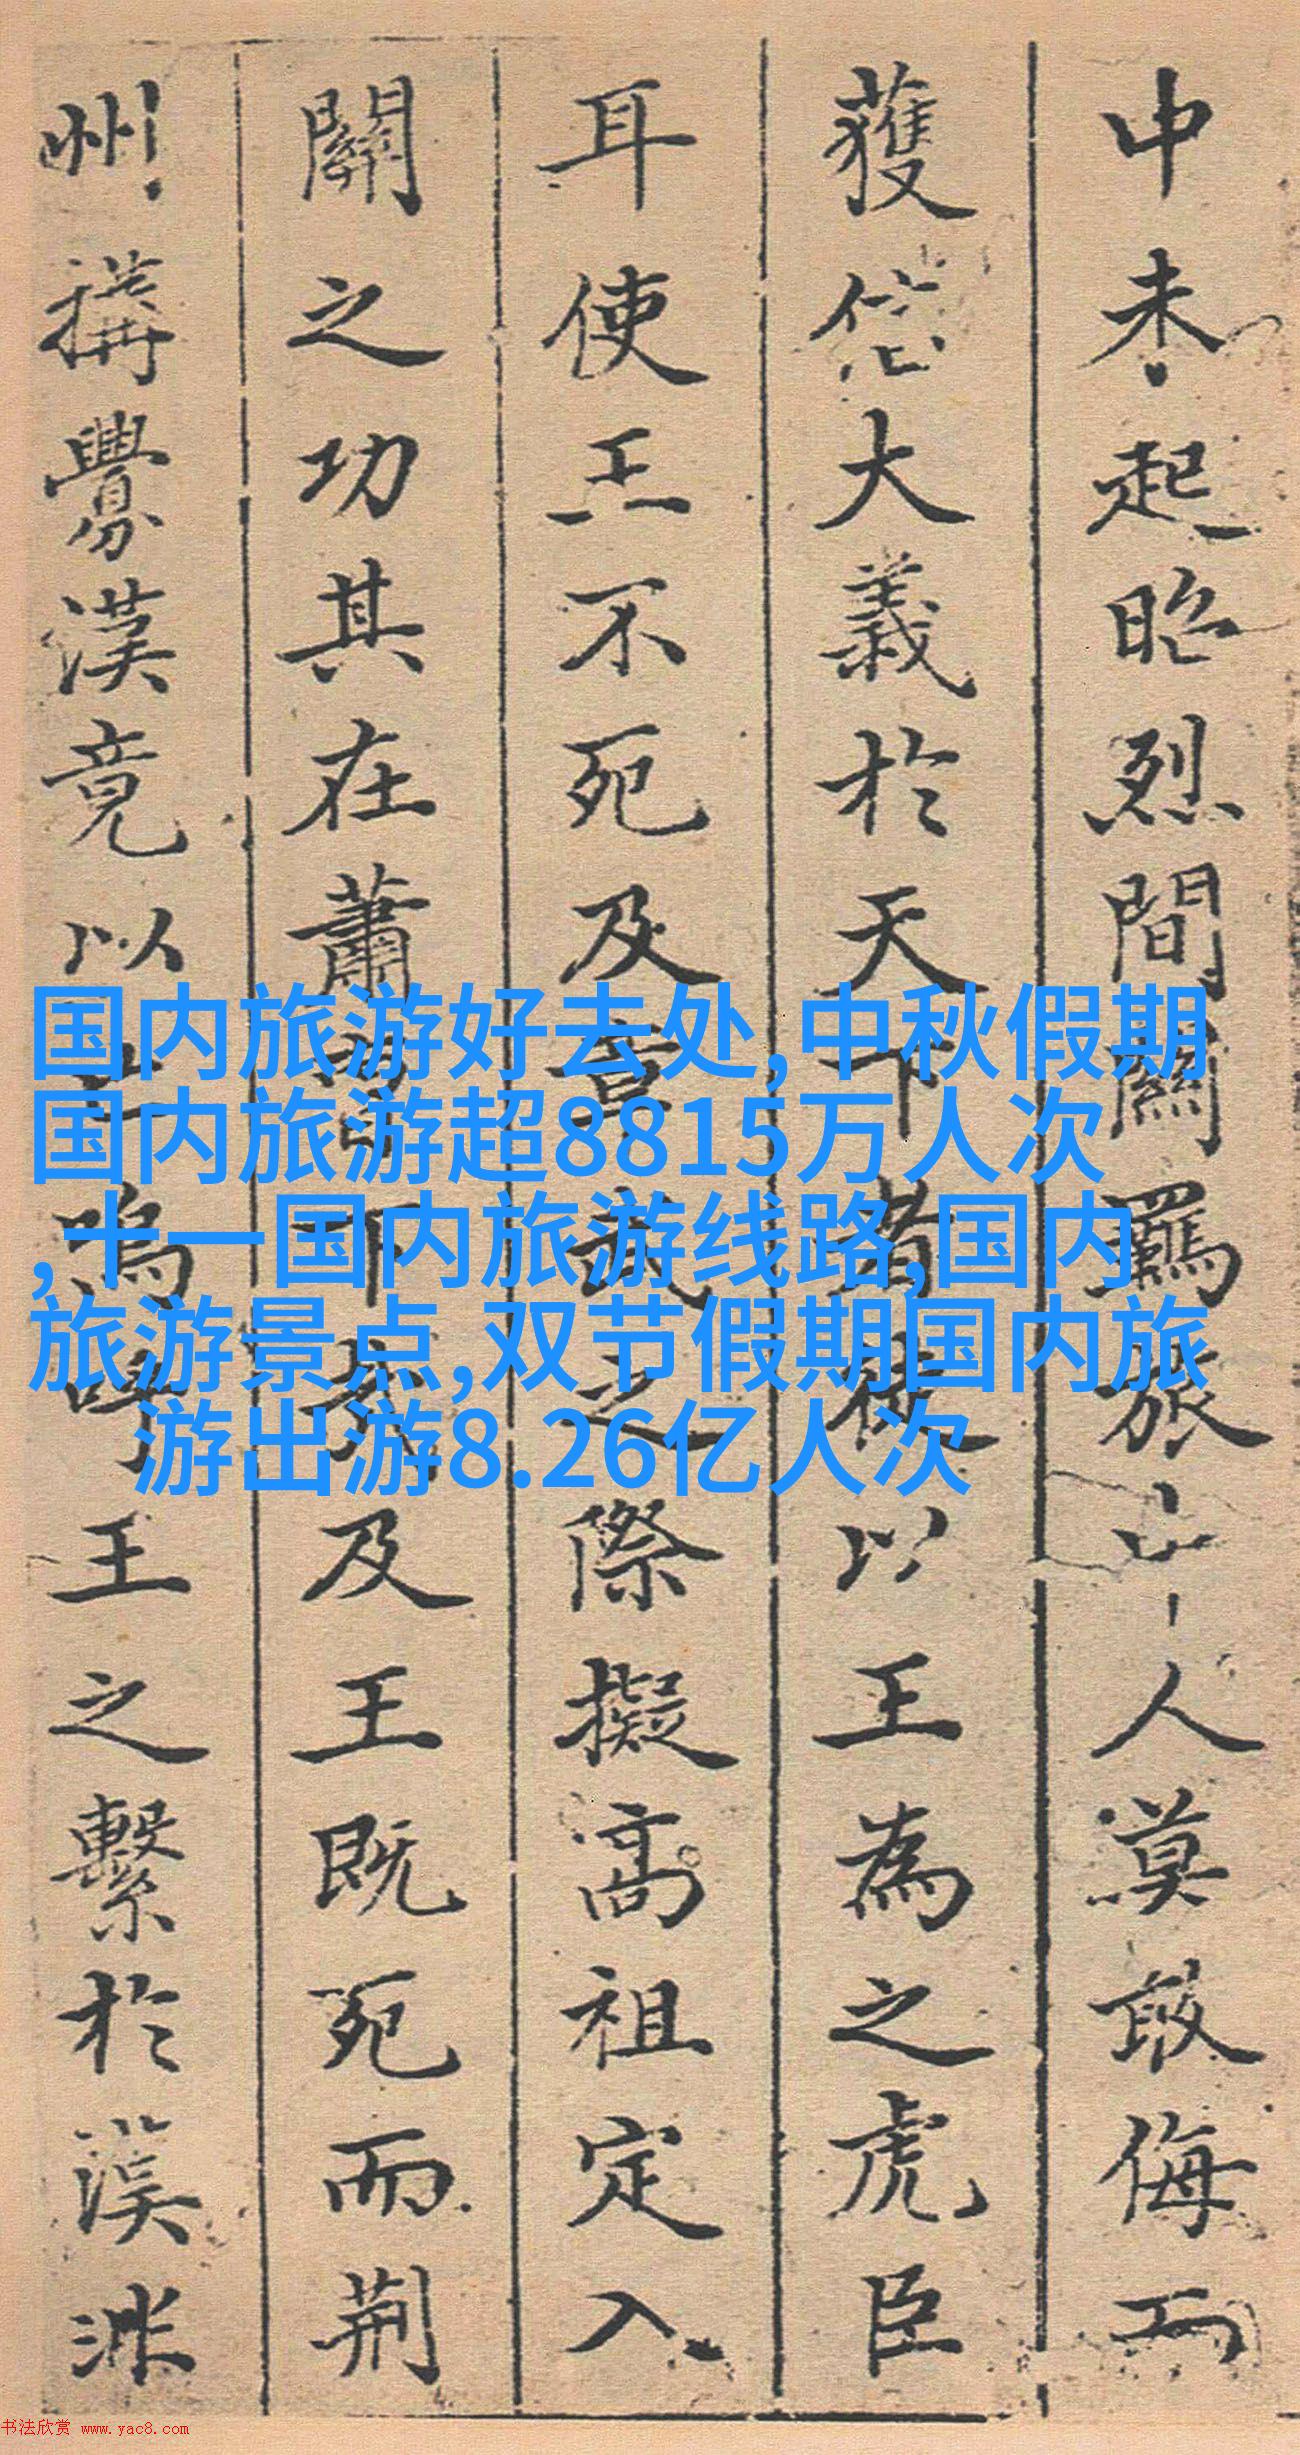 中未起昭烈間關羈旅人莫敢侮而
獲信大義於天下者徒以王為之虎臣
耳使王不死及章武之際擬高祖定入
關之功其在蕭曹下哉及王既死而荊
州搆釁漢竟以亡嗚呼王之繫於漢
国内旅游好去处,中秋假期
国内旅游超8815万人次
,十一国内旅游线路,国内
旅游景点,双节假期国内旅
游出游8.26亿人次
书法欣赏 www.yac8.com